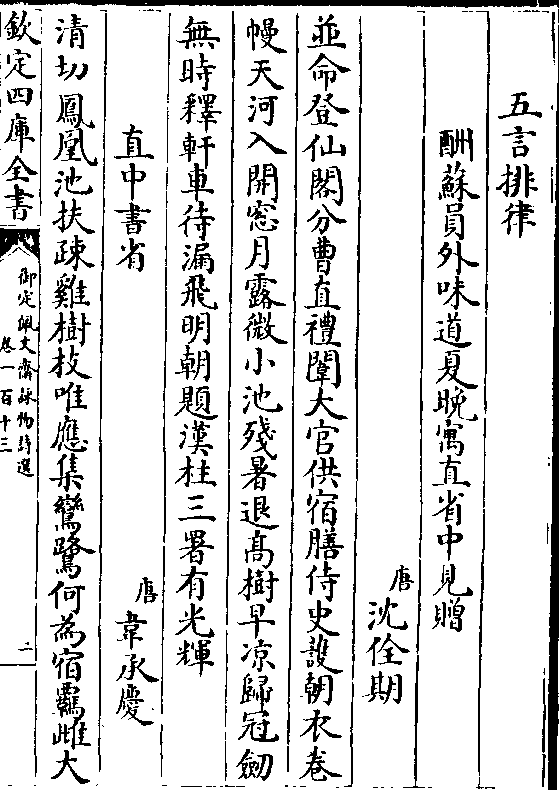 五言排律
酬蘇員外味道夏晚寓直省中見贈
唐沈佺期
並命登仙閣分曹直禮闈大官供宿膳侍史護朝衣卷
幔天河入開窓月露微小池殘暑退高樹早凉歸冠劒
無時釋軒車待漏飛明朝題漢柱三署有光輝
直中書省
唐韋承慶
清切鳳凰池扶疎雞樹枝唯應集鸞鷺何為宿羈雌大
欽定四庫全書
御定佩文齋詠物詩選
卷一百十三
二